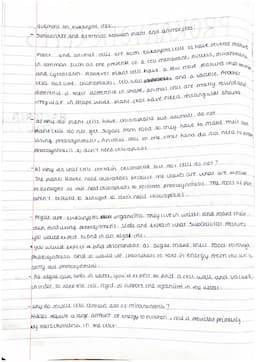 Questions on eukaryotic cells.
- Similarities and differences between plant and animal cells.
Plant and animal cells are both eukaryotic cells so have several features
in common such as the presence of a cell membrane, nucleus, mitochondria,
and cytoplasm. However plant cells have a few more features that animal
cells like chloroplasts, cell wall and a vacuole. Another
difference is their difference in shape, animal cells are mostly round and
irregular in shape while plant cells have fixed, rectangular shapes.
- a) Why do plant cells have chloroplasts but animals do not
Plant cells do not get sugars from food so they have to make their own
using photosynthesis. Animal cells on the other hand do not need to
photosynthesis so don't need chloroplasts.
- b) Why do leaf cells contain chloroplasts but root cells do not?
The plant leaves need chloroplasts because the leaves are what are
to sunlight so will need chloroplasts to perform photosynthesis. The roots of
aren't exposed to sunlight so don't need chloroplasts.
- Algae are eukaryotic organisms. They live in water and make their
own food using photosynthesis. State and explain what subcellular features
you would expect to find in an algal cell.
- You would expect to find chloroplasts as algae make their food through
photosynthesis and so would need chloroplasts to take in energy from the sun to
carry out photosynthesis.
- As algae live in water, you'd expect to find a cell wall and vacuole,
in order to keep the cell rigid to support the organism in the water.
- Why do muscle cells contain lots of mitochondria?
Muscles require a large amount of energy to function, and is provided primarily
by mitochondria in the cell.